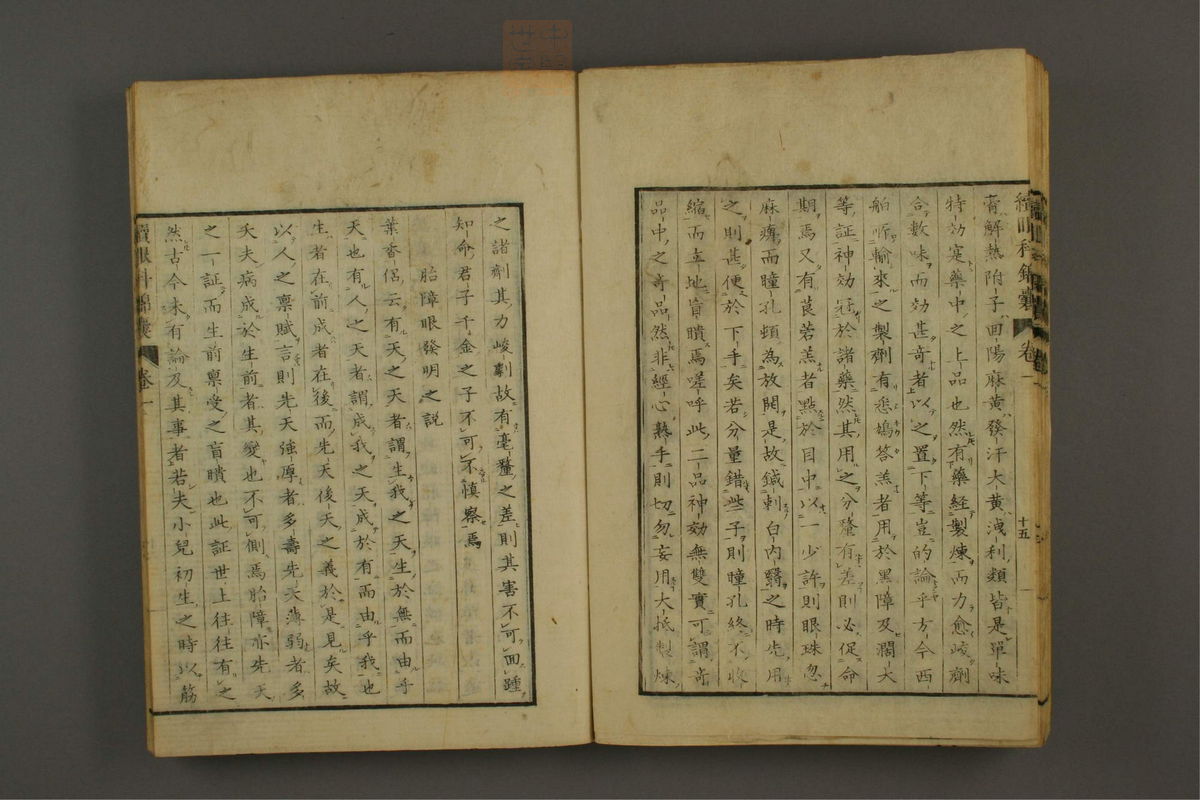 續眼科錦囊 卷一 十五
膏解熱附子回陽麻黃發汗大黃洩利類皆是單味
特効寔藥中之上品也然有藥經製煉而力愈峻劑
合數味而効甚奇者以之置下等豈的論乎方今西
舶所輸來之製劑有悉鳩答羔者用於黑障及瀾大
等証神効冠於諸藥然其用之分釐有差則必促命
期焉又有莨若羔者點於目中以一少許則眼珠忽
麻痺而瞳孔頓為放開是故鍼刺白內翳之時先用
之則甚便於下手矣若分量錯些子則瞳孔終不收
縮而立地盲瞶焉嗟呼此二品神効無雙實可謂奇
品中之奇品然非經心熟手則切勿妄用大抵製煉
之諸劑其力峻劇故有毫釐之差則其害不可回踵
知命君子千金之子不可不慎察焉
胎障眼發明之説
葉杏侶云有天之天者謂生我之天生於無而由乎
天也有人之天者謂成我之天成於有而由乎我也
生者在前成者在後而先天後天之義於是見矣故
以人之禀賦言則先天強厚者多壽先天薄弱者多
夭夫病成於生前者其變也不可側焉胎障亦先天
之一証而生前禀受之盲瞶也此証世上往往有之
然古今未有論及其事者若夫小兒初生之時以筋
續眼科錦囊 卷一